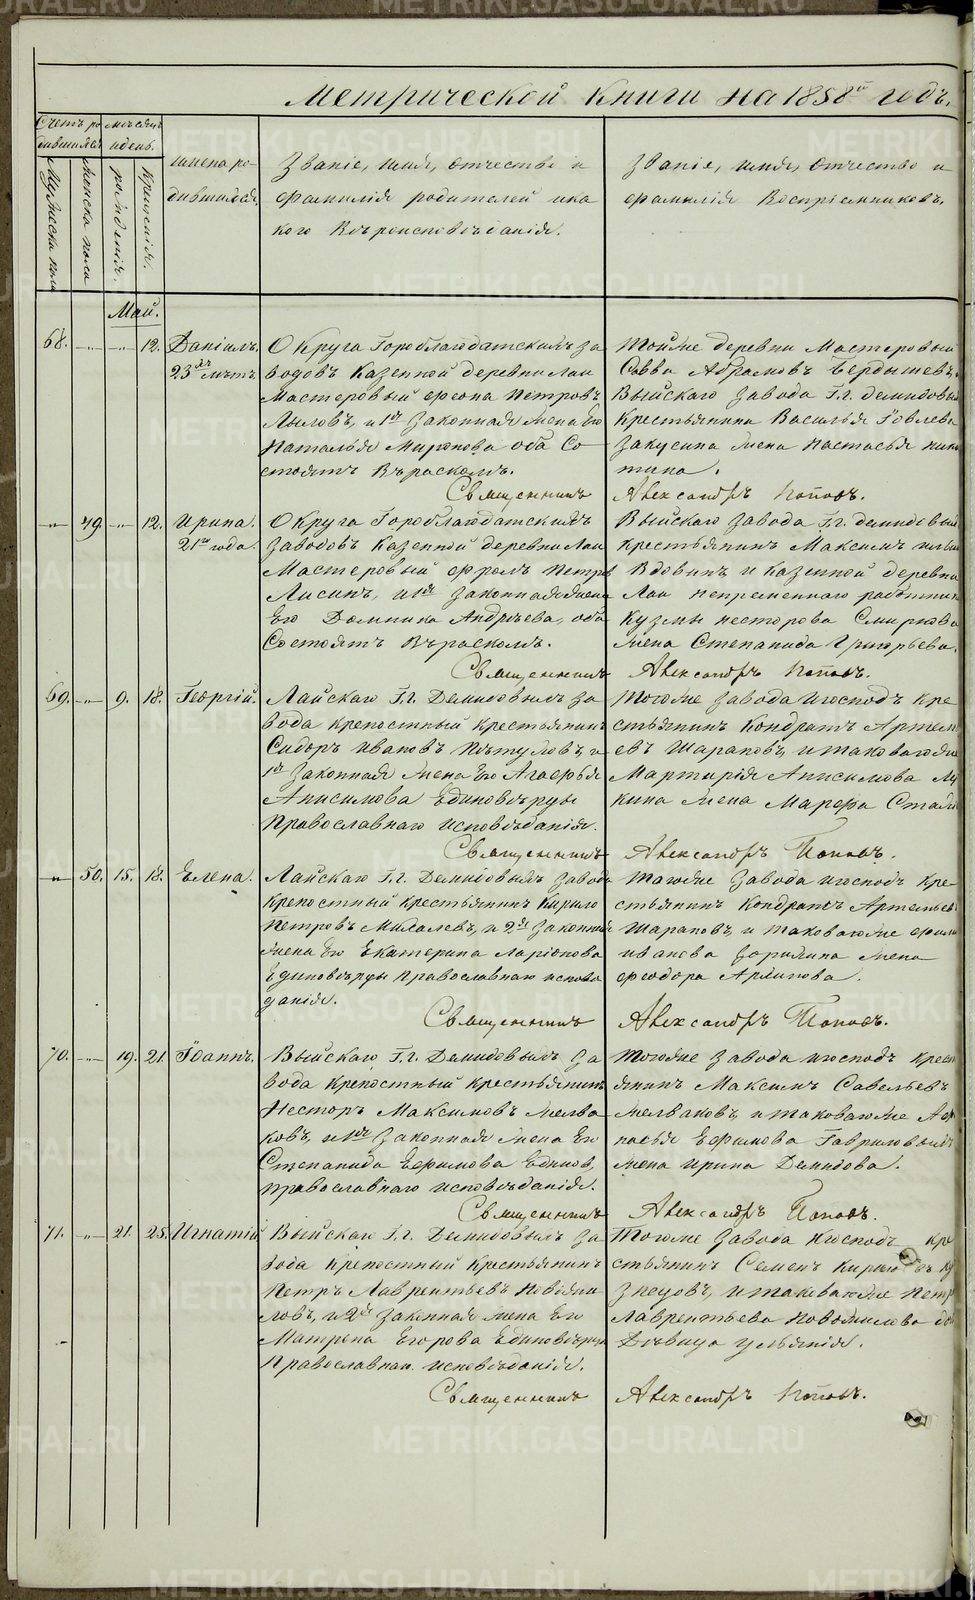 Метрической книги на 1858й годъ.
Счетъ ро
дившихся
мѣсяцъ
и день.
Мужеска пола
женска пола
рожденія.
крещенія.
имена ро-
дившихся.
Званіе, имя, отчество и
фамилія родителей и ка
кого вѣроисповѣданія.
Званіе, имя, отчество и
фамилія восприемниковъ.
Май.
68. 12. Даніилъ.
23 лѣтъ.
Округа Гороблагодатскихъ за
водовъ казенной деревни Лаи
мастеровый Петровъ
и 1я законная жена его
Наталья Миронова оба со
стоятъ въ расколѣ.
Тойже деревни мастеровый
Савва Абрамовъ Бердышевъ,
Выйскаго завода Г.г. Демидовыхъ
крестьянина Василья
жена Настасья
Священникъ Александръ Поповъ.
49 12. Ирина.
21 года.
Округа Гороблагодатскихъ
заводовъ казенной деревни Лаи
мастеровый Петровъ
Лисинъ, и 1я законная жена
его Домника Андреева, оба
состоятъ въ расколѣ.
Выйскаго завода Г.г. Демидовыхъ
крестьянинъ Максимъ
Вдовинъ и казенной деревни
Лаи непременнаго работника
Кузмы Несторова Смирнова
жена Степанида Григорьева.
Священникъ Александръ Поповъ.
69. 9. 18. Георгій.
Лайскаго Г.г. Демидовыхъ за
вода крепостный крестьянинъ
Сидоръ Ивановъ Пѣтуховъ, и
1я законная жена его Агафья
Анисимова Единовѣрцы
православнаго исповѣданія.
Тогоже завода и господъ кре
стьянинъ Кондратъ Артемь
евъ Шараповъ, и таковагоже
Мартирія Анисимова
жена Марфа
Священникъ Александръ Поповъ.
50. 15. 18. Елена.
Лайскаго Г.г. Демидовыхъ завода
крепостный крестьянинъ Кирило
Петровъ и 2я законная
жена его Екатерина Ларіонова
Единовѣрцы православнаго испове
данія.
Тогоже завода и господъ кре
стьянинъ Кондратъ Артемьевъ
Шараповъ, и таковагоже
Иванова жена
Феодора
Священникъ Александръ Поповъ.
70. 19. 21. Іоаннъ.
Выйскаго Г.г. Демидовыхъ за
вода крепостный крестьянинъ
Несторъ Максимовъ Мелва
ковъ, и 1я законная жена его
Степанида Ефимова Единов,
православнаго исповѣданія.
Тогоже завода и господъ крест
янинъ Максимъ Савельевъ
Мелваковъ, и таковагоже
Ефимова
жена Ирина Демидова.
Священникъ Александръ Поповъ.
71. 21. 25. Игнатій
Выйскаго Г.г. Демидовыхъ за
вода крепостный крестьянинъ
Петръ Лаврентьевъ Новожи
ловъ, и 2я законная жена его
Матрена Егорова Единовѣрцы
православнаго исповѣданія.
Тогоже завода и господъ кре
стьянинъ Семенъ Кириловъ Ку
знецовъ, и таковагоже Петра
Лаврентьева Новожилова дочь
дѣвица Ульянія.
Священникъ Александръ Поповъ.
METRIKI.GASO-URAL.RU